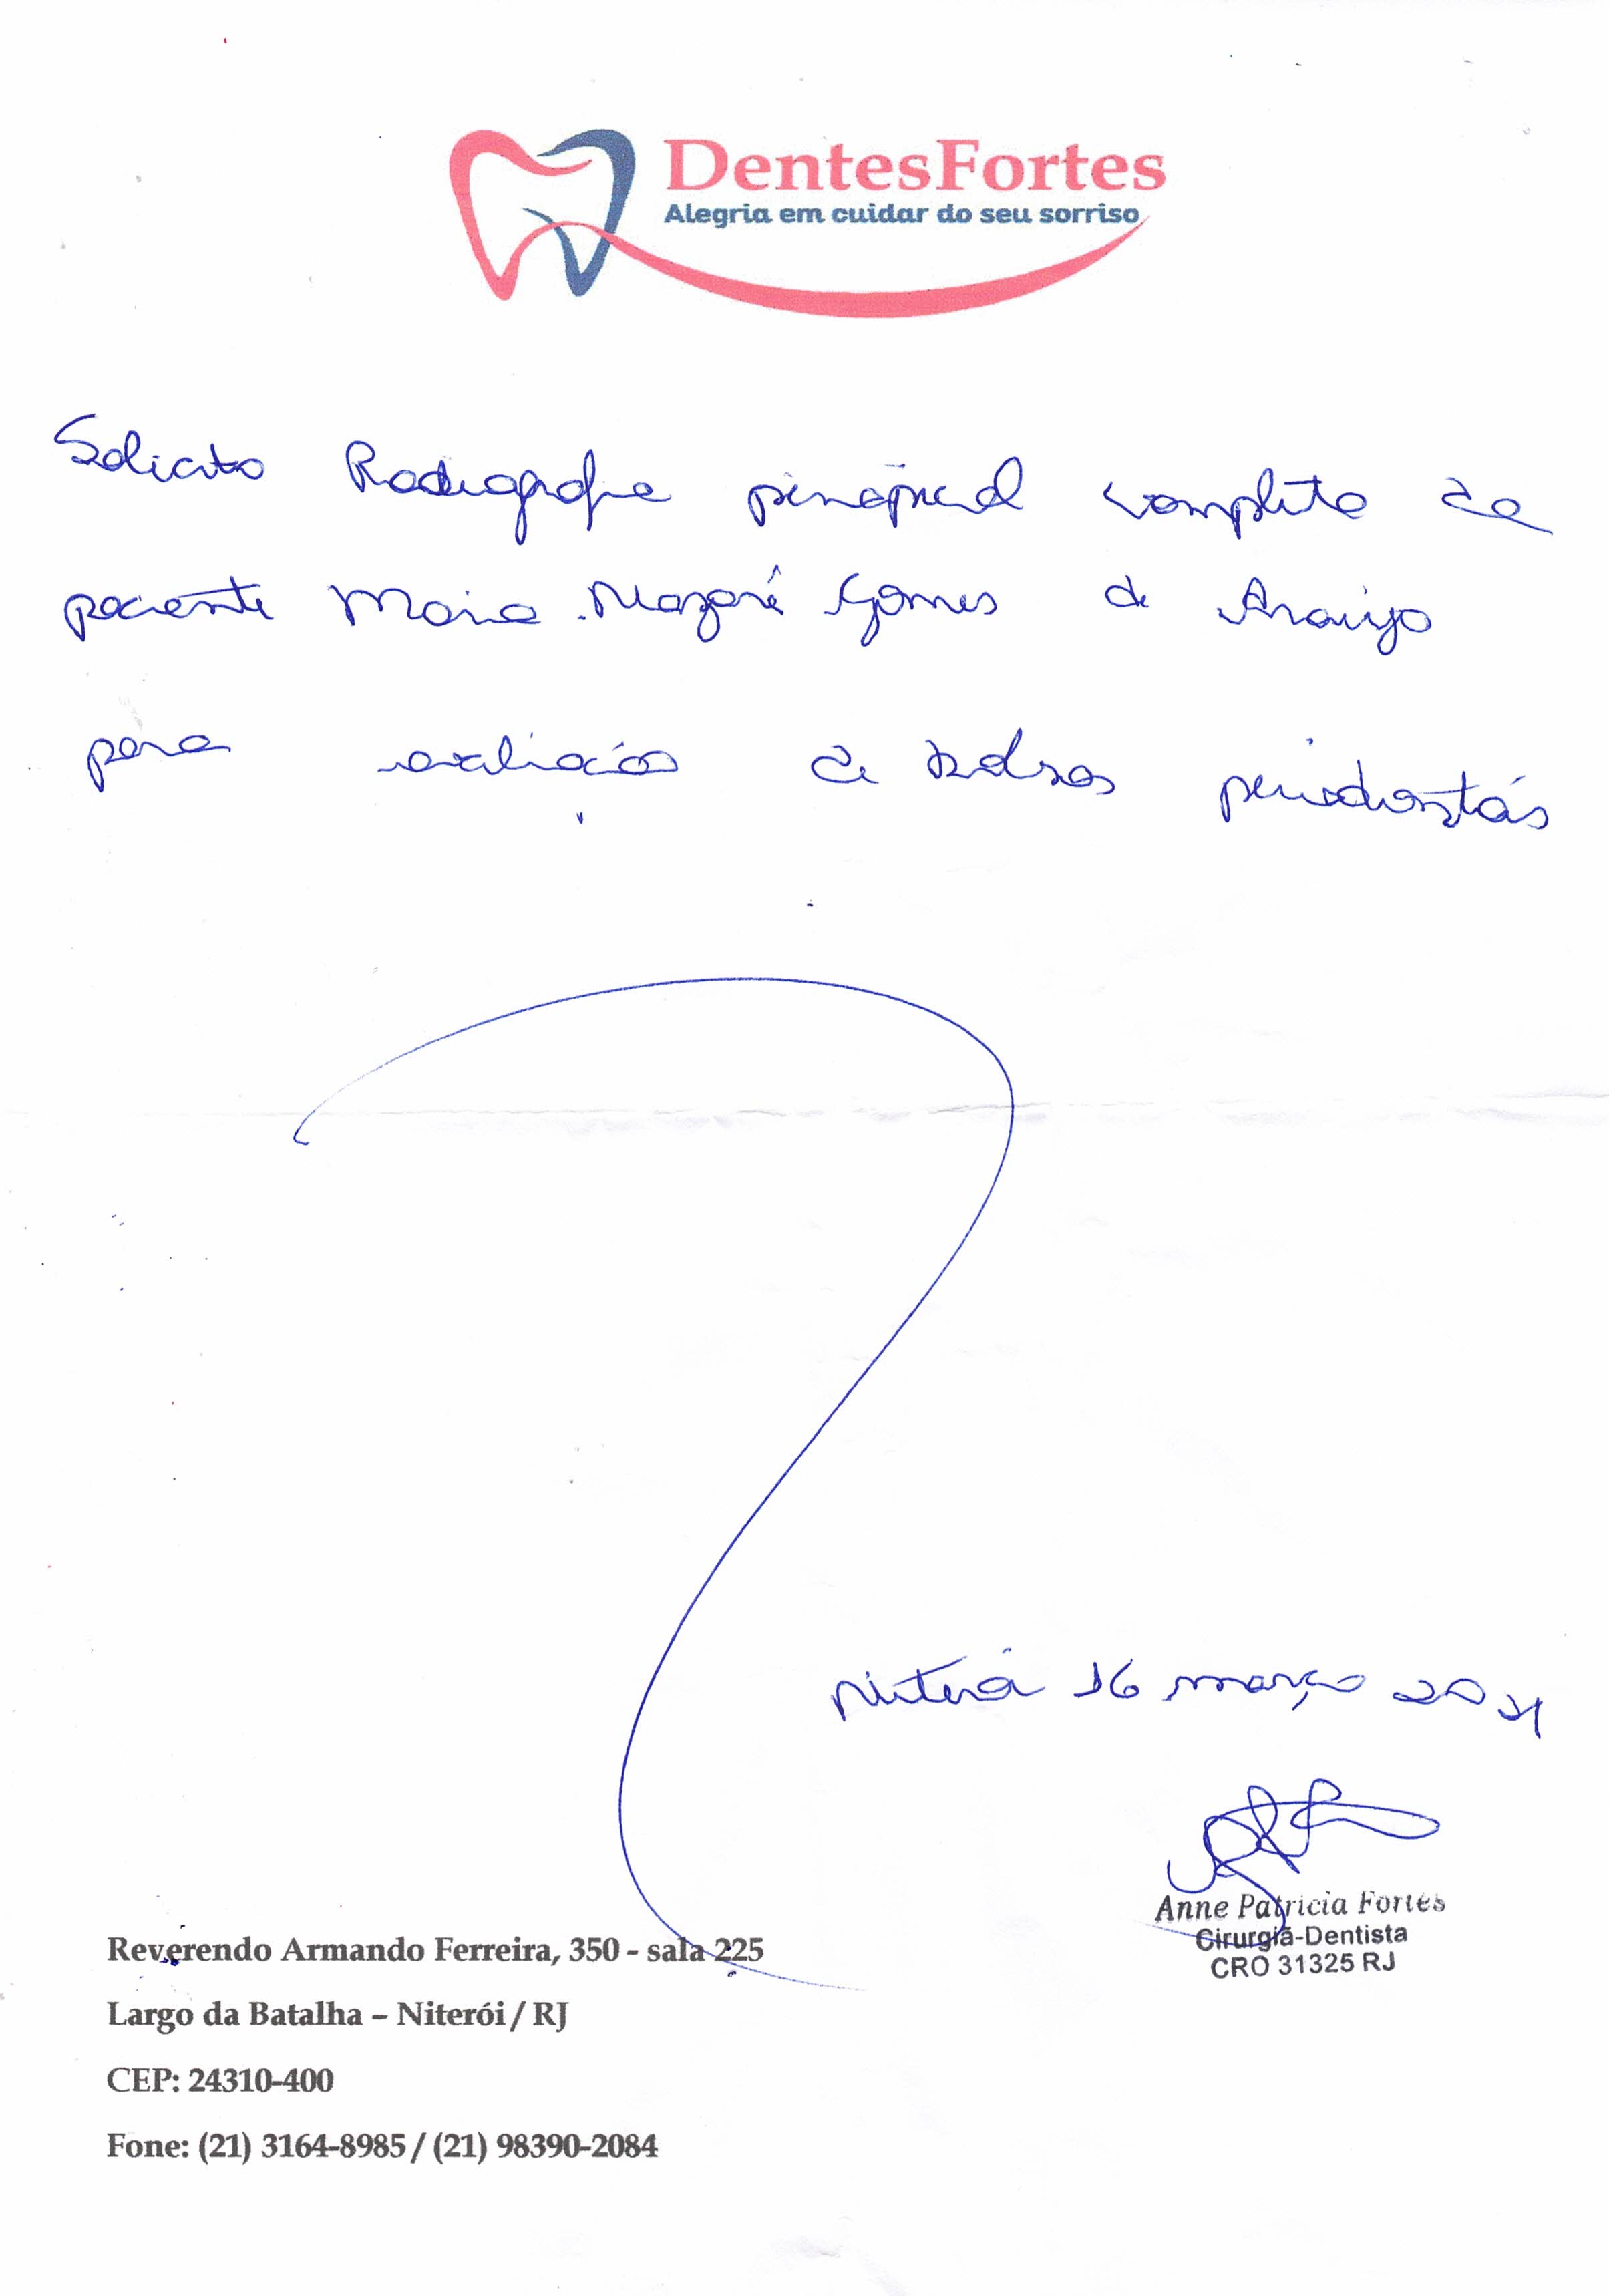 DentesFortes
Alegria em cuidar do seu sorriso
Solicito Radiografia periapical completa da
paciente Maria Nazaré Gomes de Araújo
para avaliação de bolsas periodontais
Niterói 16 março 2021
Anne Patricia Fortes
Cirurgiã-Dentista
CRO 31325 RJ
Reverendo Armando Ferreira, 350 - sala 225
Largo da Batalha – Niterói / RJ
CEP: 24310-400
Fone: (21) 3164-8985 / (21) 98390-2084